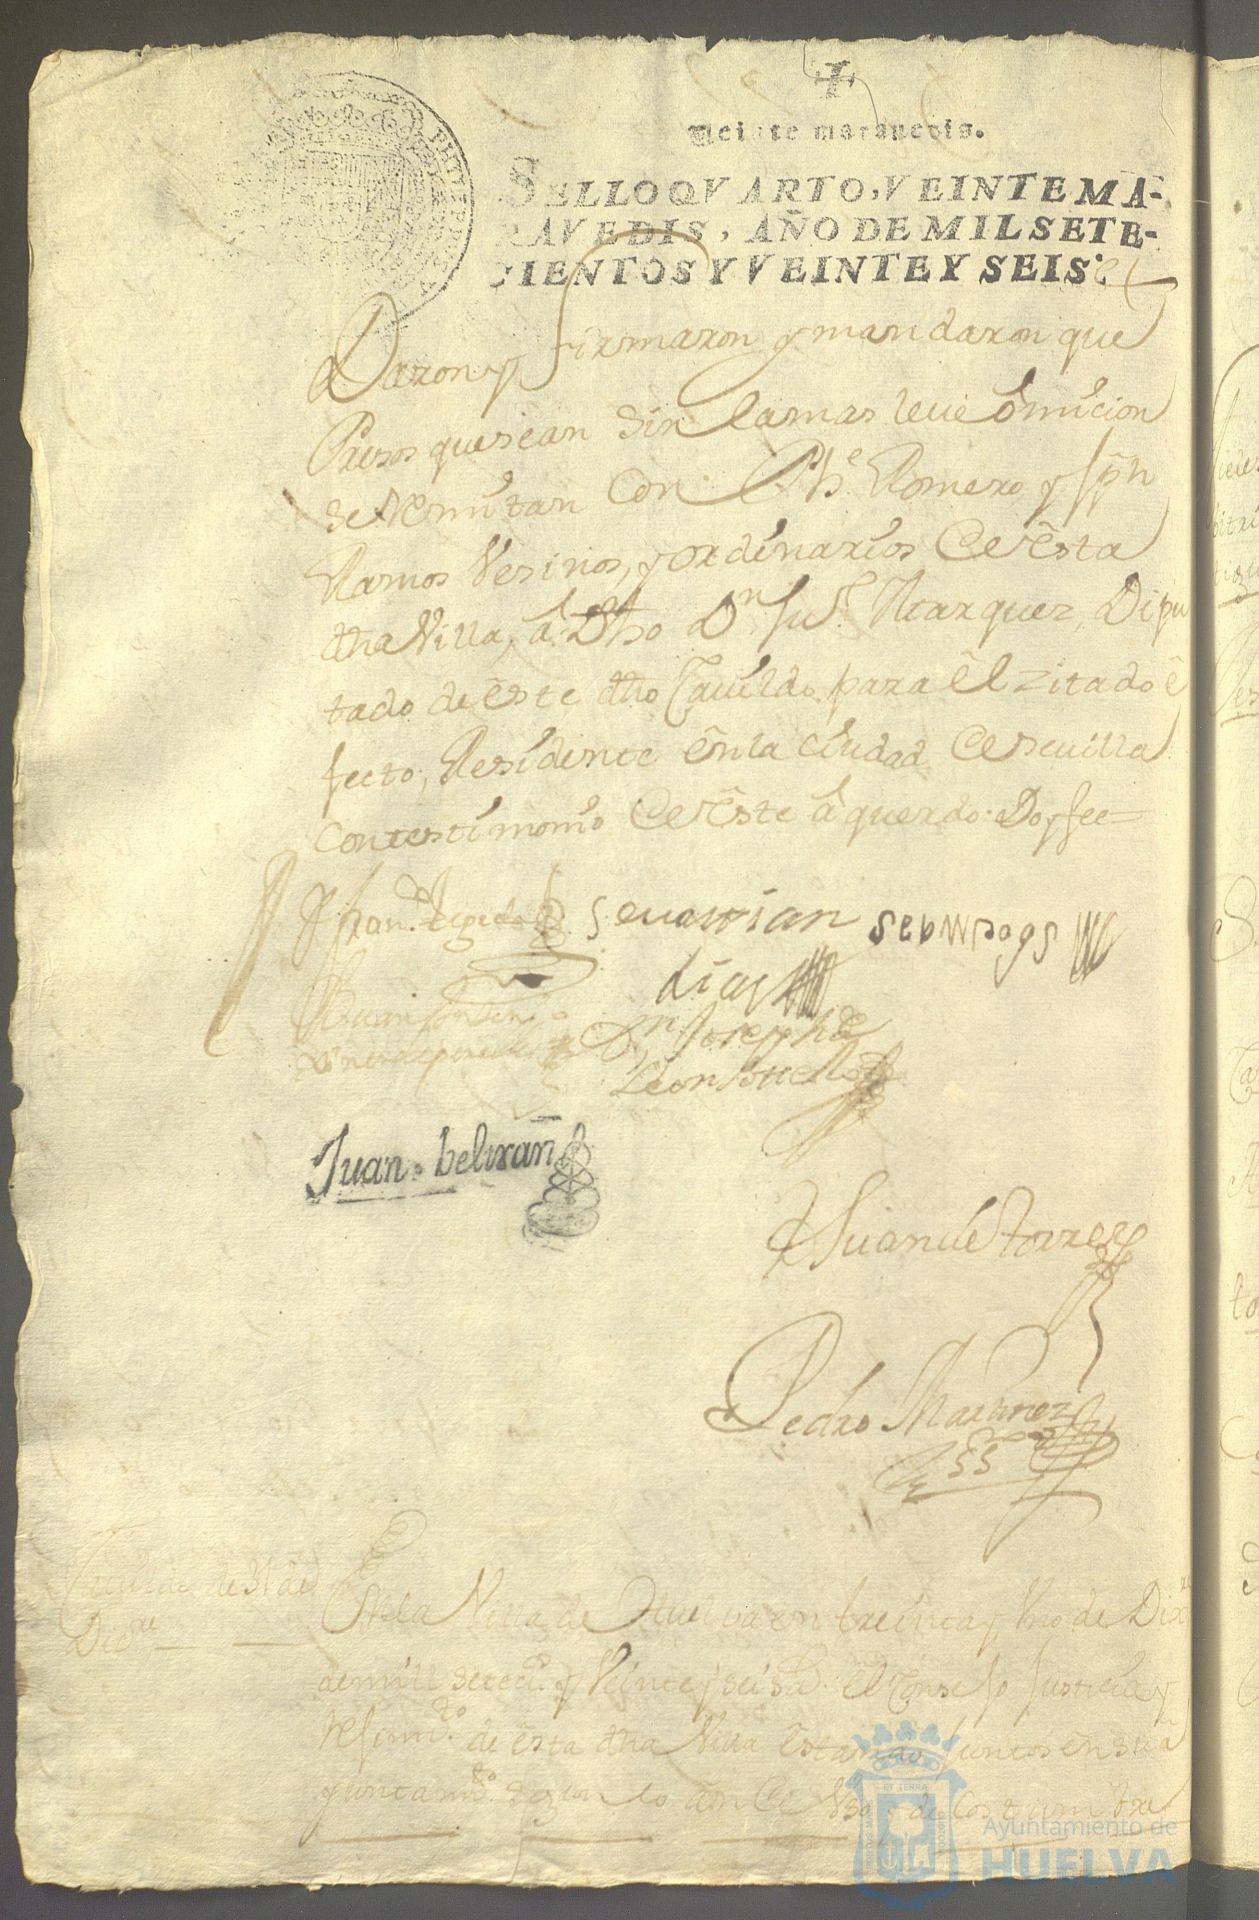 Veinte maravedis.
SELLO QVARTO, VEINTE MA-
RAVEDIS, AÑO DE MIL SETE-
CIENTOS Y VEINTE Y SEIS.
PHILIPPUS
Daron y firmaron y mandaron que
Presos que sean sin la mas leue omicion
se Remitan con Phe. Romero y Jph
Ramos Vesinos, y ordinarios de esta
dha Villa, a Dho Dn Ju. Marquez, Dipu
tado de este dho Cauildo para el zitado e
fecto, Residente en la ciudad de seuilla
con testimonio de este aquerdo. Doy fee
Fran.
seuastian
dias
Dn Joseph de
Leon
Juan. beltran
Juan de torres
Pedro Martinez
Cauildo de 31 de
Dizre
En la Villa de Huelva en treinta y Uno de Dizre
de mill setezs. y Veinte y seis as. el Consejo Justicia y
Rejimto. de esta dha Villa estando Juntos en su a
yuntamto. segun lo an de Vso y de Costumbre
ET TERRÆ
Ayuntamiento de
HUELVA